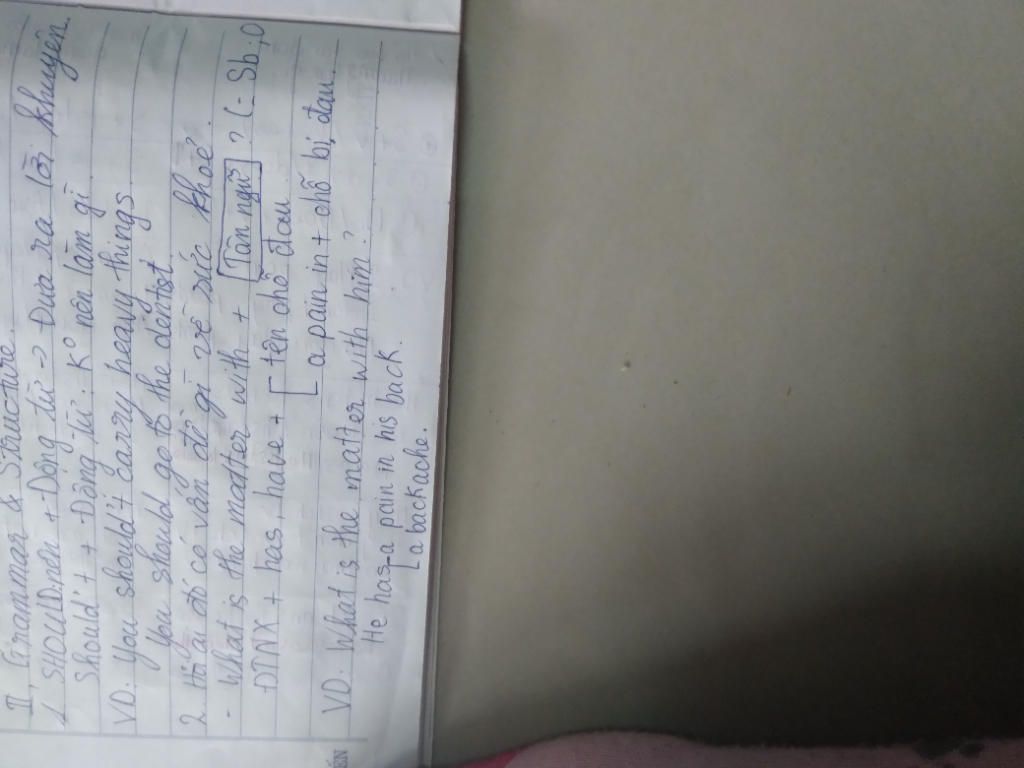 II, Grammar & Structure.
1. SHOULD nên + Động từ -> Đưa ra lời khuyên.
Should't + Động từ: K° nên làm gì
VD. You should't carry heavy things
You should go to the dentist
2. Hỏi ai đó có vấn đề gì về sức khoẻ.
- What is the matter with + [Tân ngữ] ? (- Sb; O
ĐTNX + has, have + [ tên chỗ đau
a pain in + chỗ bị đau.
VD. What is the matter with him?
He has a pain in his back.
[a backache.
ẾN